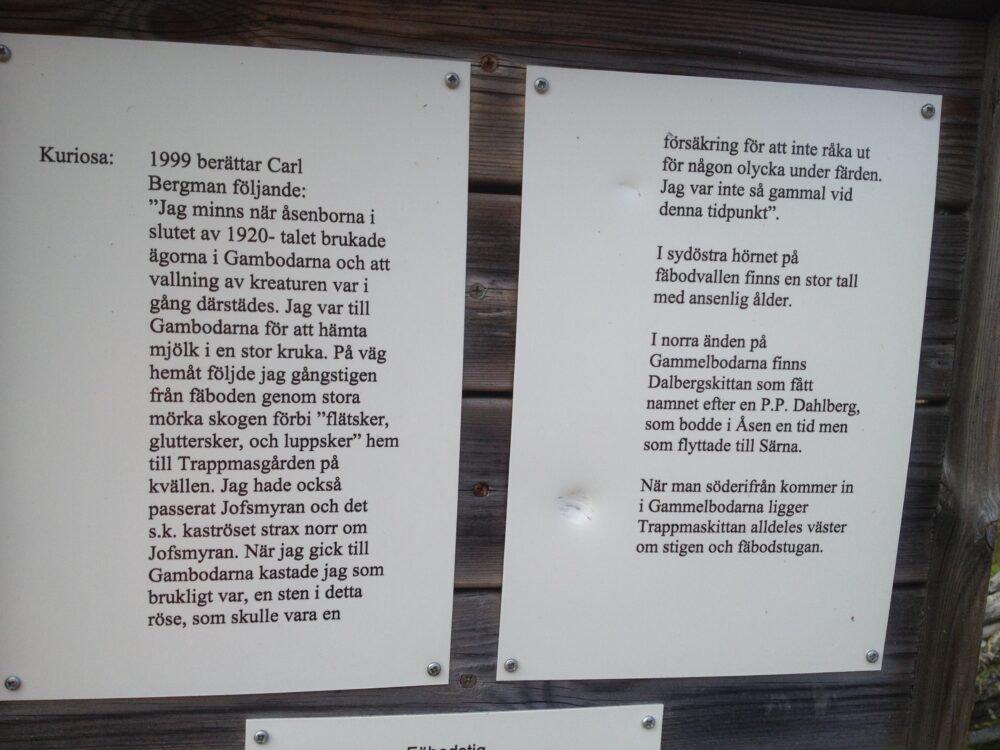 Kuriosa:
1999 berättar Carl
Bergman följande:
”Jag minns när åsenborna i
slutet av 1920- talet brukade
ägorna i Gambodarna och att
vallning av kreaturen var i
gång därstädes. Jag var till
Gambodarna för att hämta
mjölk i en stor kruka. På väg
hemåt följde jag gångstigen
från fäboden genom stora
mörka skogen förbi ”flätsker,
gluttersker, och luppsker” hem
till Trappmasgården på
kvällen. Jag hade också
passerat Jofsmyran och det
s.k. kaströset strax norr om
Jofsmyran. När jag gick till
Gambodarna kastade jag som
brukligt var, en sten i detta
röse, som skulle vara en
försäkring för att inte råka ut
för någon olycka under färden.
Jag var inte så gammal vid
denna tidpunkt”.
I sydöstra hörnet på
fäbodvallen finns en stor tall
med ansenlig ålder.
I norra änden på
Gammelbodarna finns
Dalbergskittan som fått
namnet efter en P.P. Dahlberg,
som bodde i Åsen en tid men
som flyttade till Särna.
När man söderifrån kommer in
i Gammelbodarna ligger
Trappmaskittan alldeles väster
om stigen och fäbodstugan.
Fäbodstig